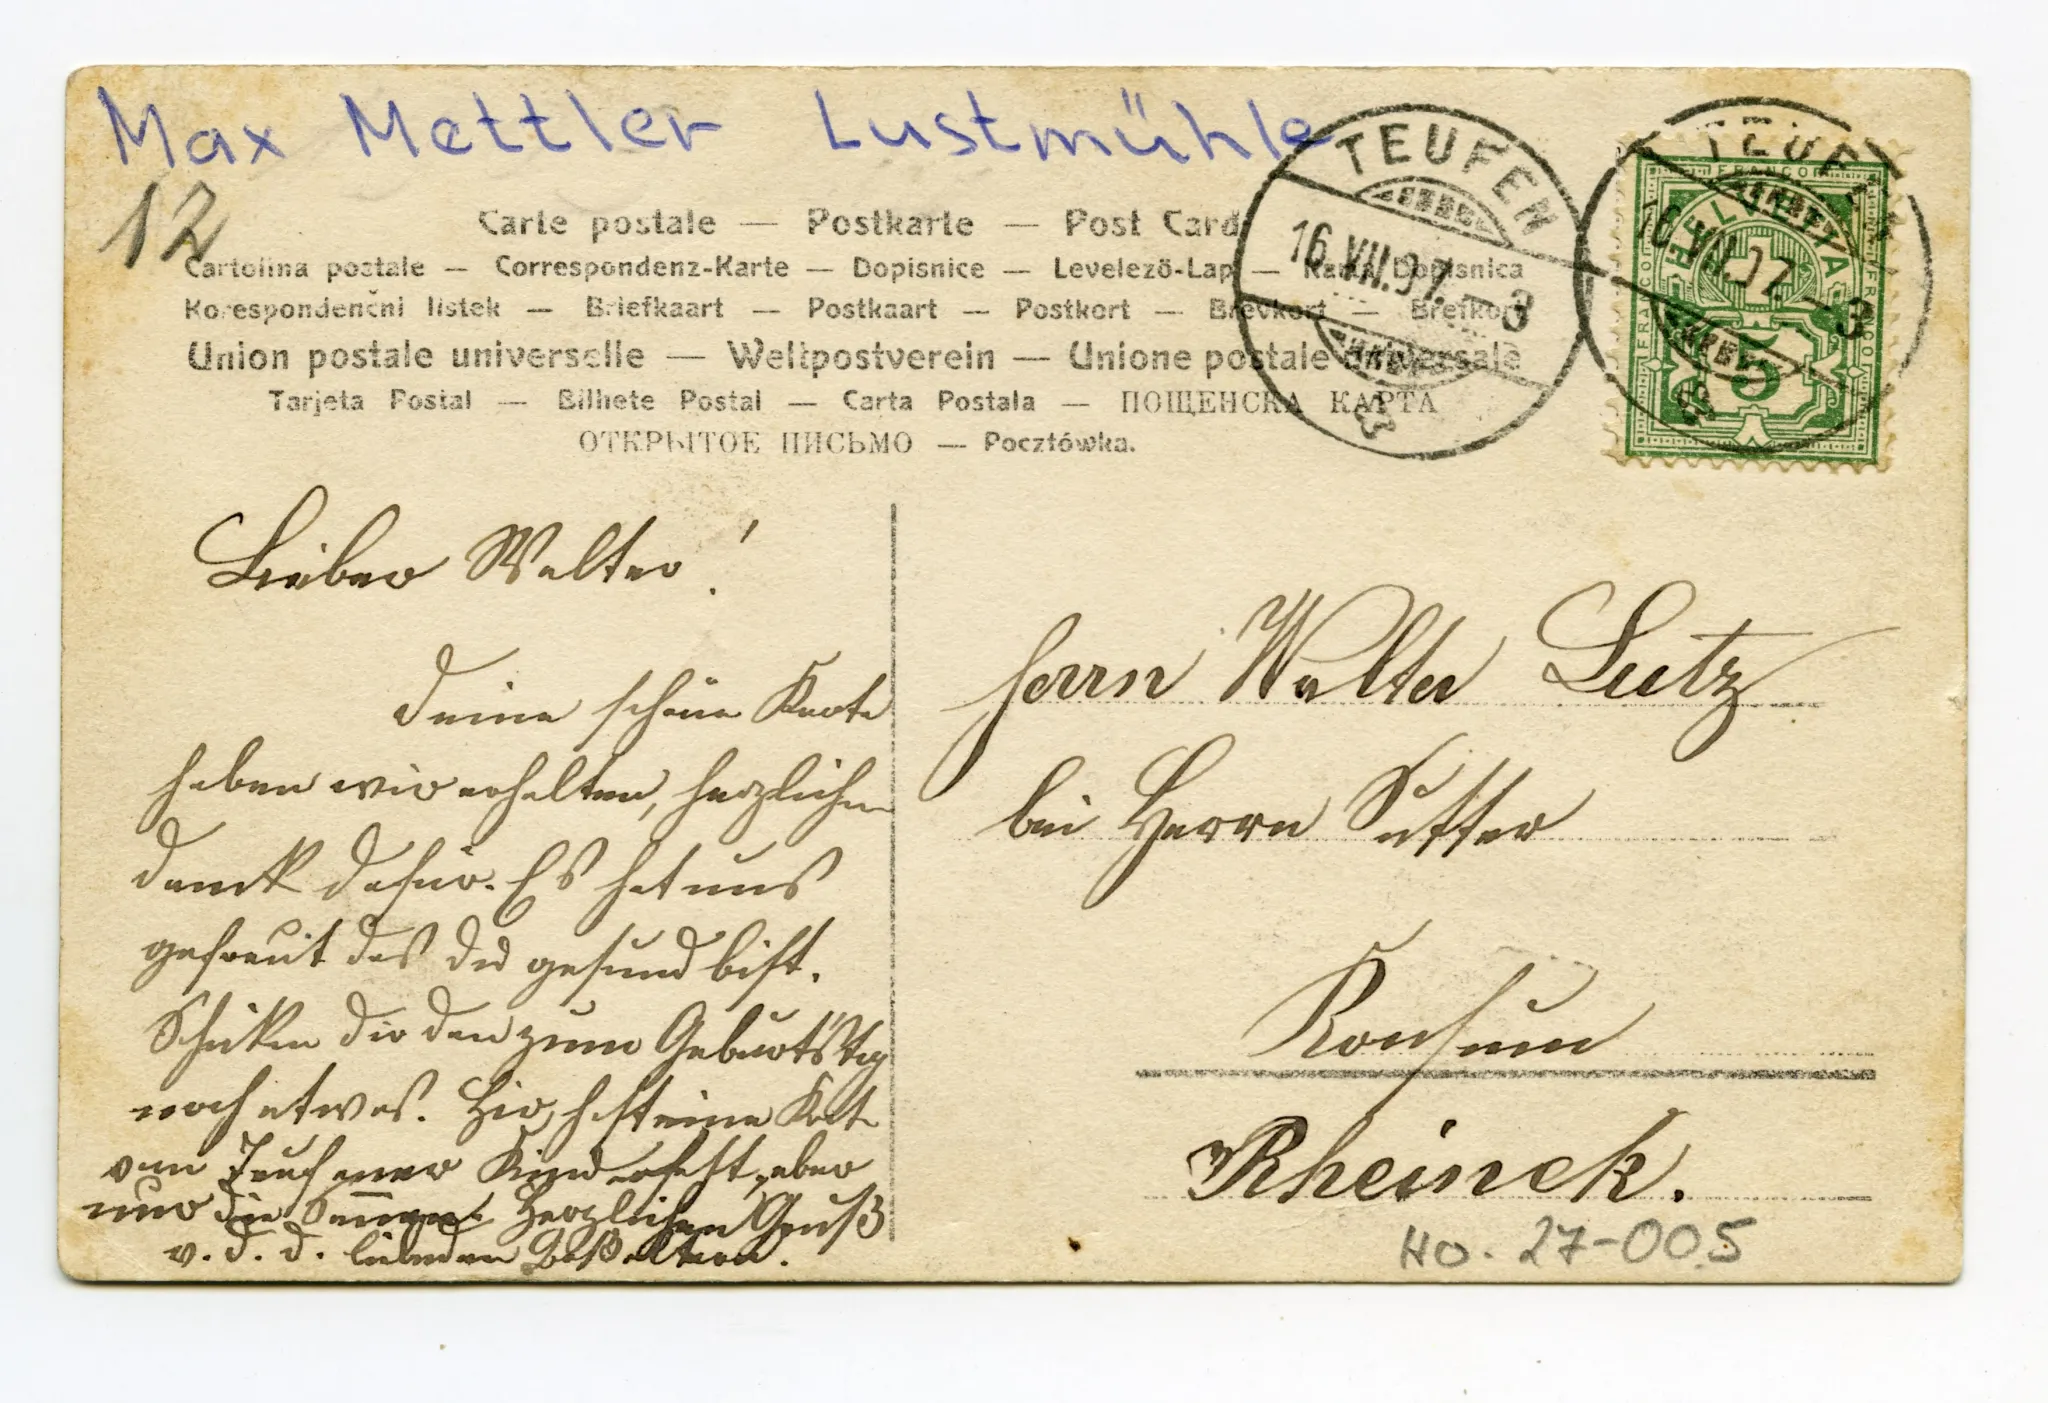 Max Mettler Lustmühle
12
Carte postale — Postkarte — Post Card
Cartolina postale — Correspondenz-Karte — Dopisnice — Levelező-Lap — Karta Dopisnica
Korespondenční lístek — Briefkaart — Postkaart — Postkort — Brevkort — Brefkort
Union postale universelle — Weltpostverein — Unione postale universale
Tarjeta Postal — Bilhete Postal — Carta Postala — ПОЩЕНСКА КАРТА
ОТКРЫТОЕ ПИСЬМО — Pocztówka.
TEUFEN
16.VII.07. — 3
TEUFEN
16.VII.07. — 3
FRANCO
HELVETIA
5
Lieber Walter!
Deine schöne Karte
haben wir erhalten, herzlichen
Dank dafür. Es hat uns
gefreut das Du gesund bist.
Schicken dir den zum Geburtstag
noch etwas. Hir hast eine Kart
vom Teufener Kinderfest, aber
nur die Herzlichen Gruß
v. d. d. liebenden
Herrn Walter Lutz
bei Herrn Sutter
Konsum
Rheineck.
Ho. 27-005